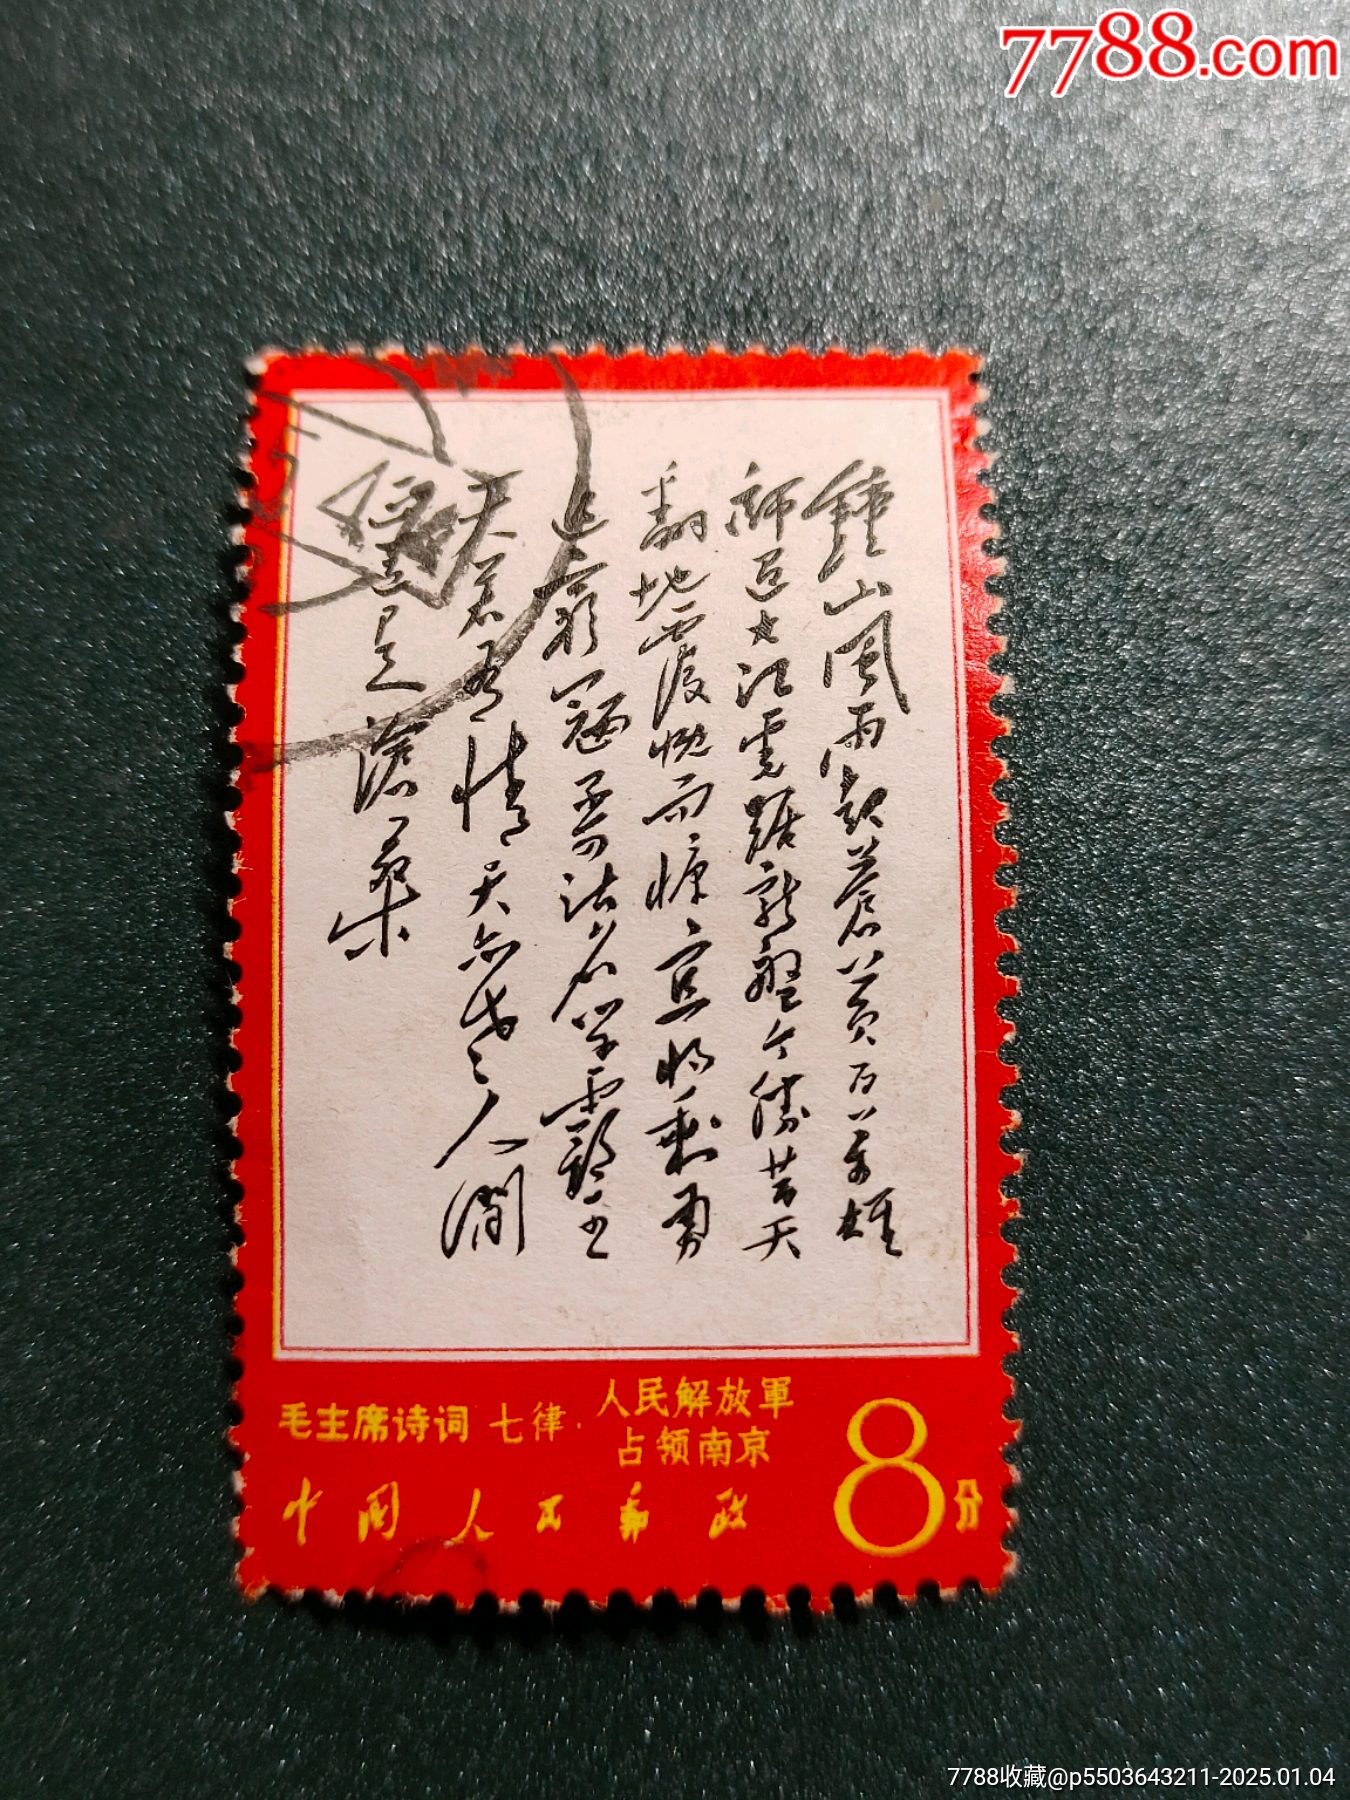 7788.com
鍾山風雨起蒼黃百萬雄
師過大江虎踞龍盤今勝昔天
翻地覆慨而慷宜將剩勇
追窮寇不可沽名學霸王
天若有情天亦老人間
正道是滄桑
毛主席诗词 七律·人民解放軍
占领南京
中国人民邮政
8分
7788收藏@p5503643211-2025.01.04